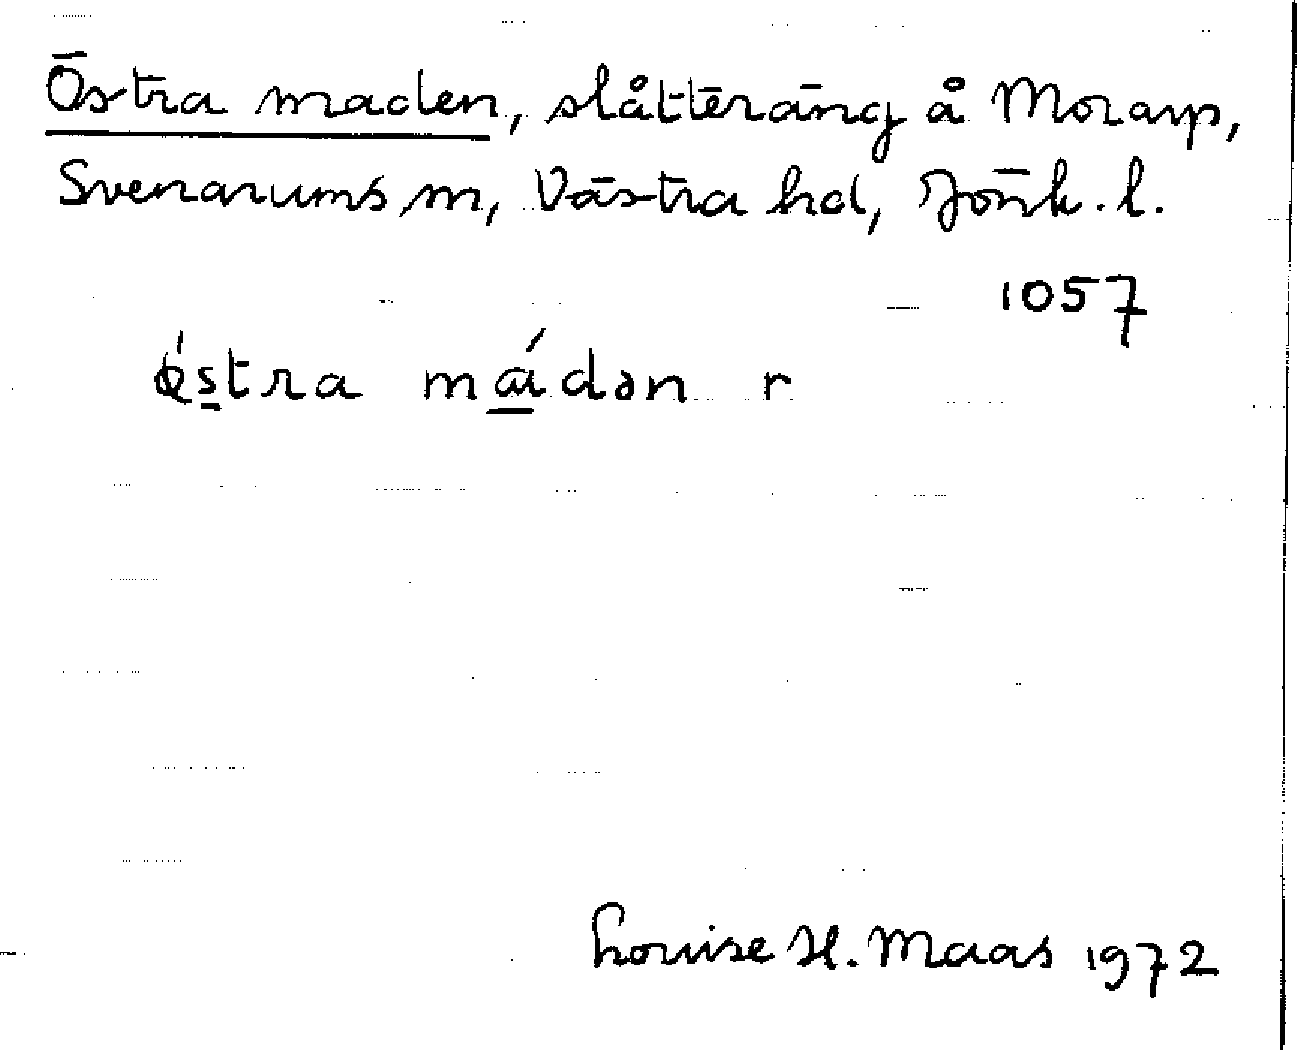 Östra maden, slåtteräng å Morarp,
Svenarums sn, Västra hd, Jönk. l.
1057
ǿstra mádən r
Louise H. Maas 1972